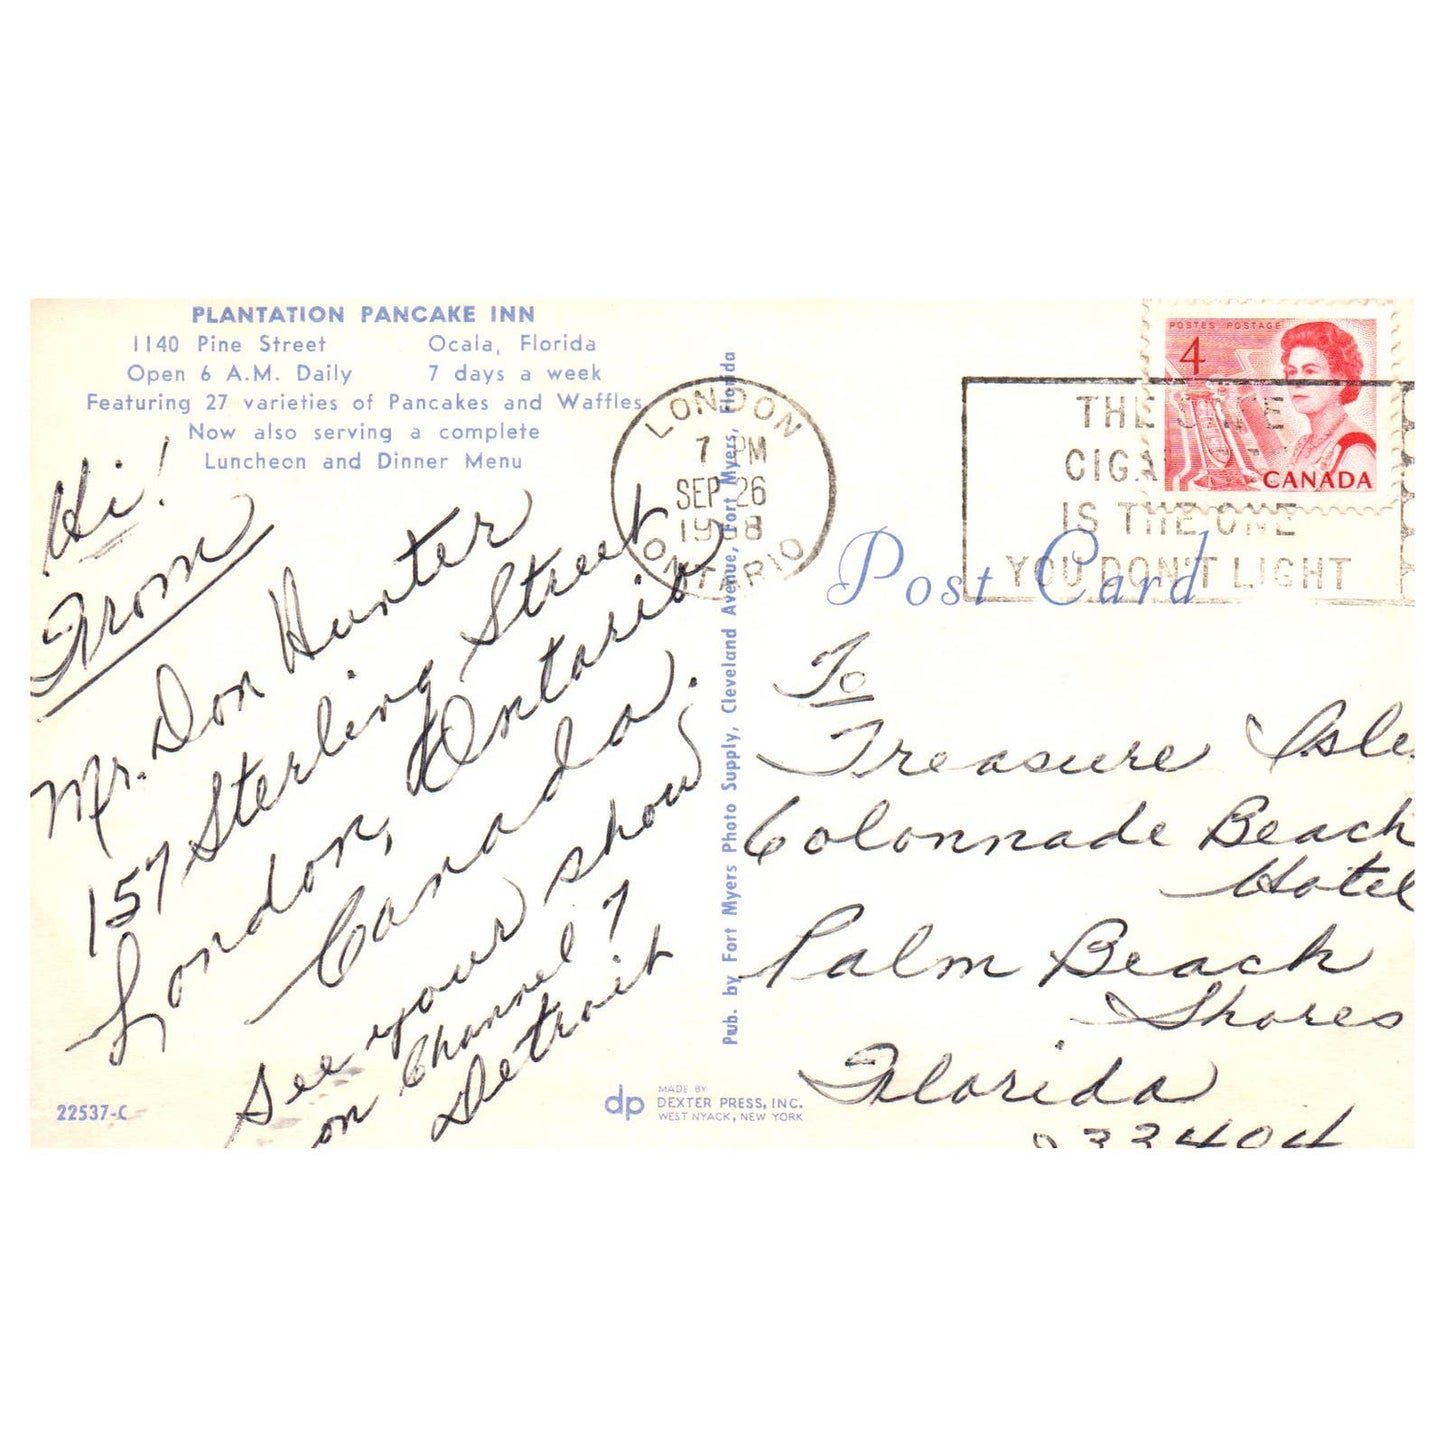 PLANTATION PANCAKE INN
1140 Pine Street Ocala, Florida
Open 6 A.M. Daily 7 days a week
Featuring 27 varieties of Pancakes and Waffles
Now also serving a complete
Luncheon and Dinner Menu
Hi!
From
Mr. Don Hunter
157 Sterling Street
London, Ontario
Canada.
See your show
on Channel 7
Detroit
22537-C
dp
MADE BY
DEXTER PRESS, INC.
WEST NYACK, NEW YORK
Pub. by Fort Myers Photo Supply, Cleveland Avenue, Fort Myers, Florida
LONDON
7 PM
SEP 26
1968
ONTARIO
THE SAFE
CIGARETTE
IS THE ONE
YOU DON'T LIGHT
POSTES POSTAGE
4
CANADA
Post Card
To
Treasure Isle
Colonnade Beach
Hotel
Palm Beach
Shores
Florida
33404